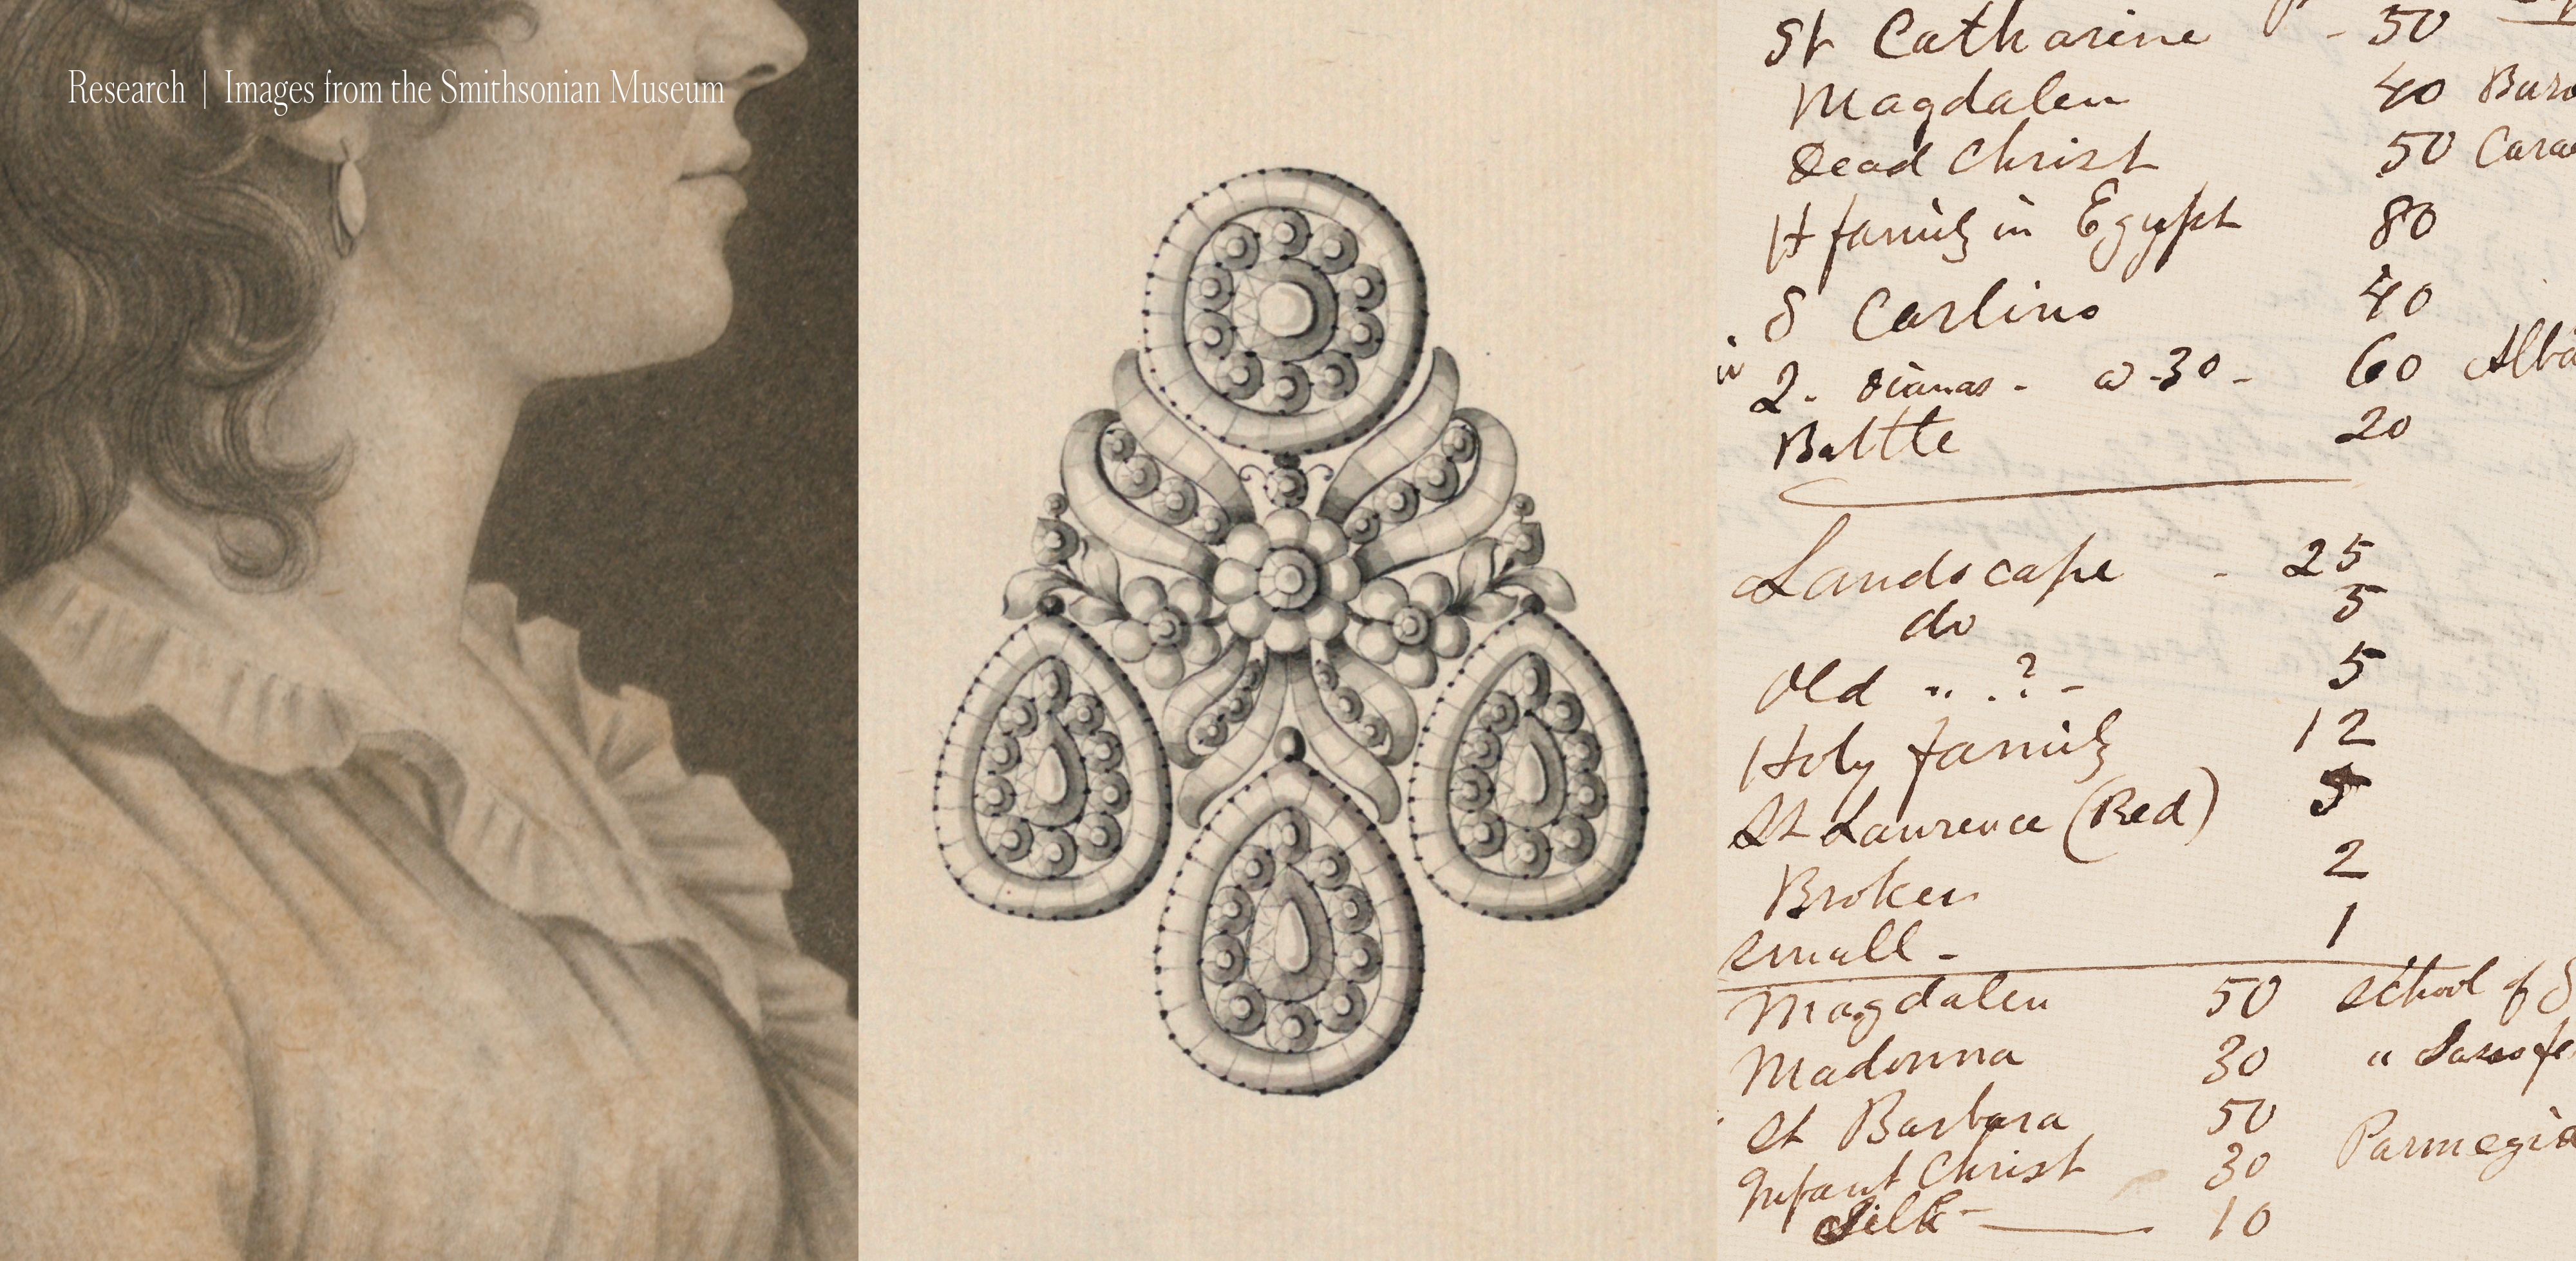 Research | Images from the Smithsonian Museum
St Catharine - 50
Magdalen 40
Dead Christ 50
H family in Egypt 80
S Carlino 40
2. Dianas - @ 30 - 60
Battle 20
Landscape - 25
do 5
Old " . ? - 5
Holy family 12
St Laurence (Red) 5
Broken 2
Small - 1
Magdalen 50 School of S
Madonna 30 "
St Barbara 50
Infant Christ 30 Parmegia
Silk - 10